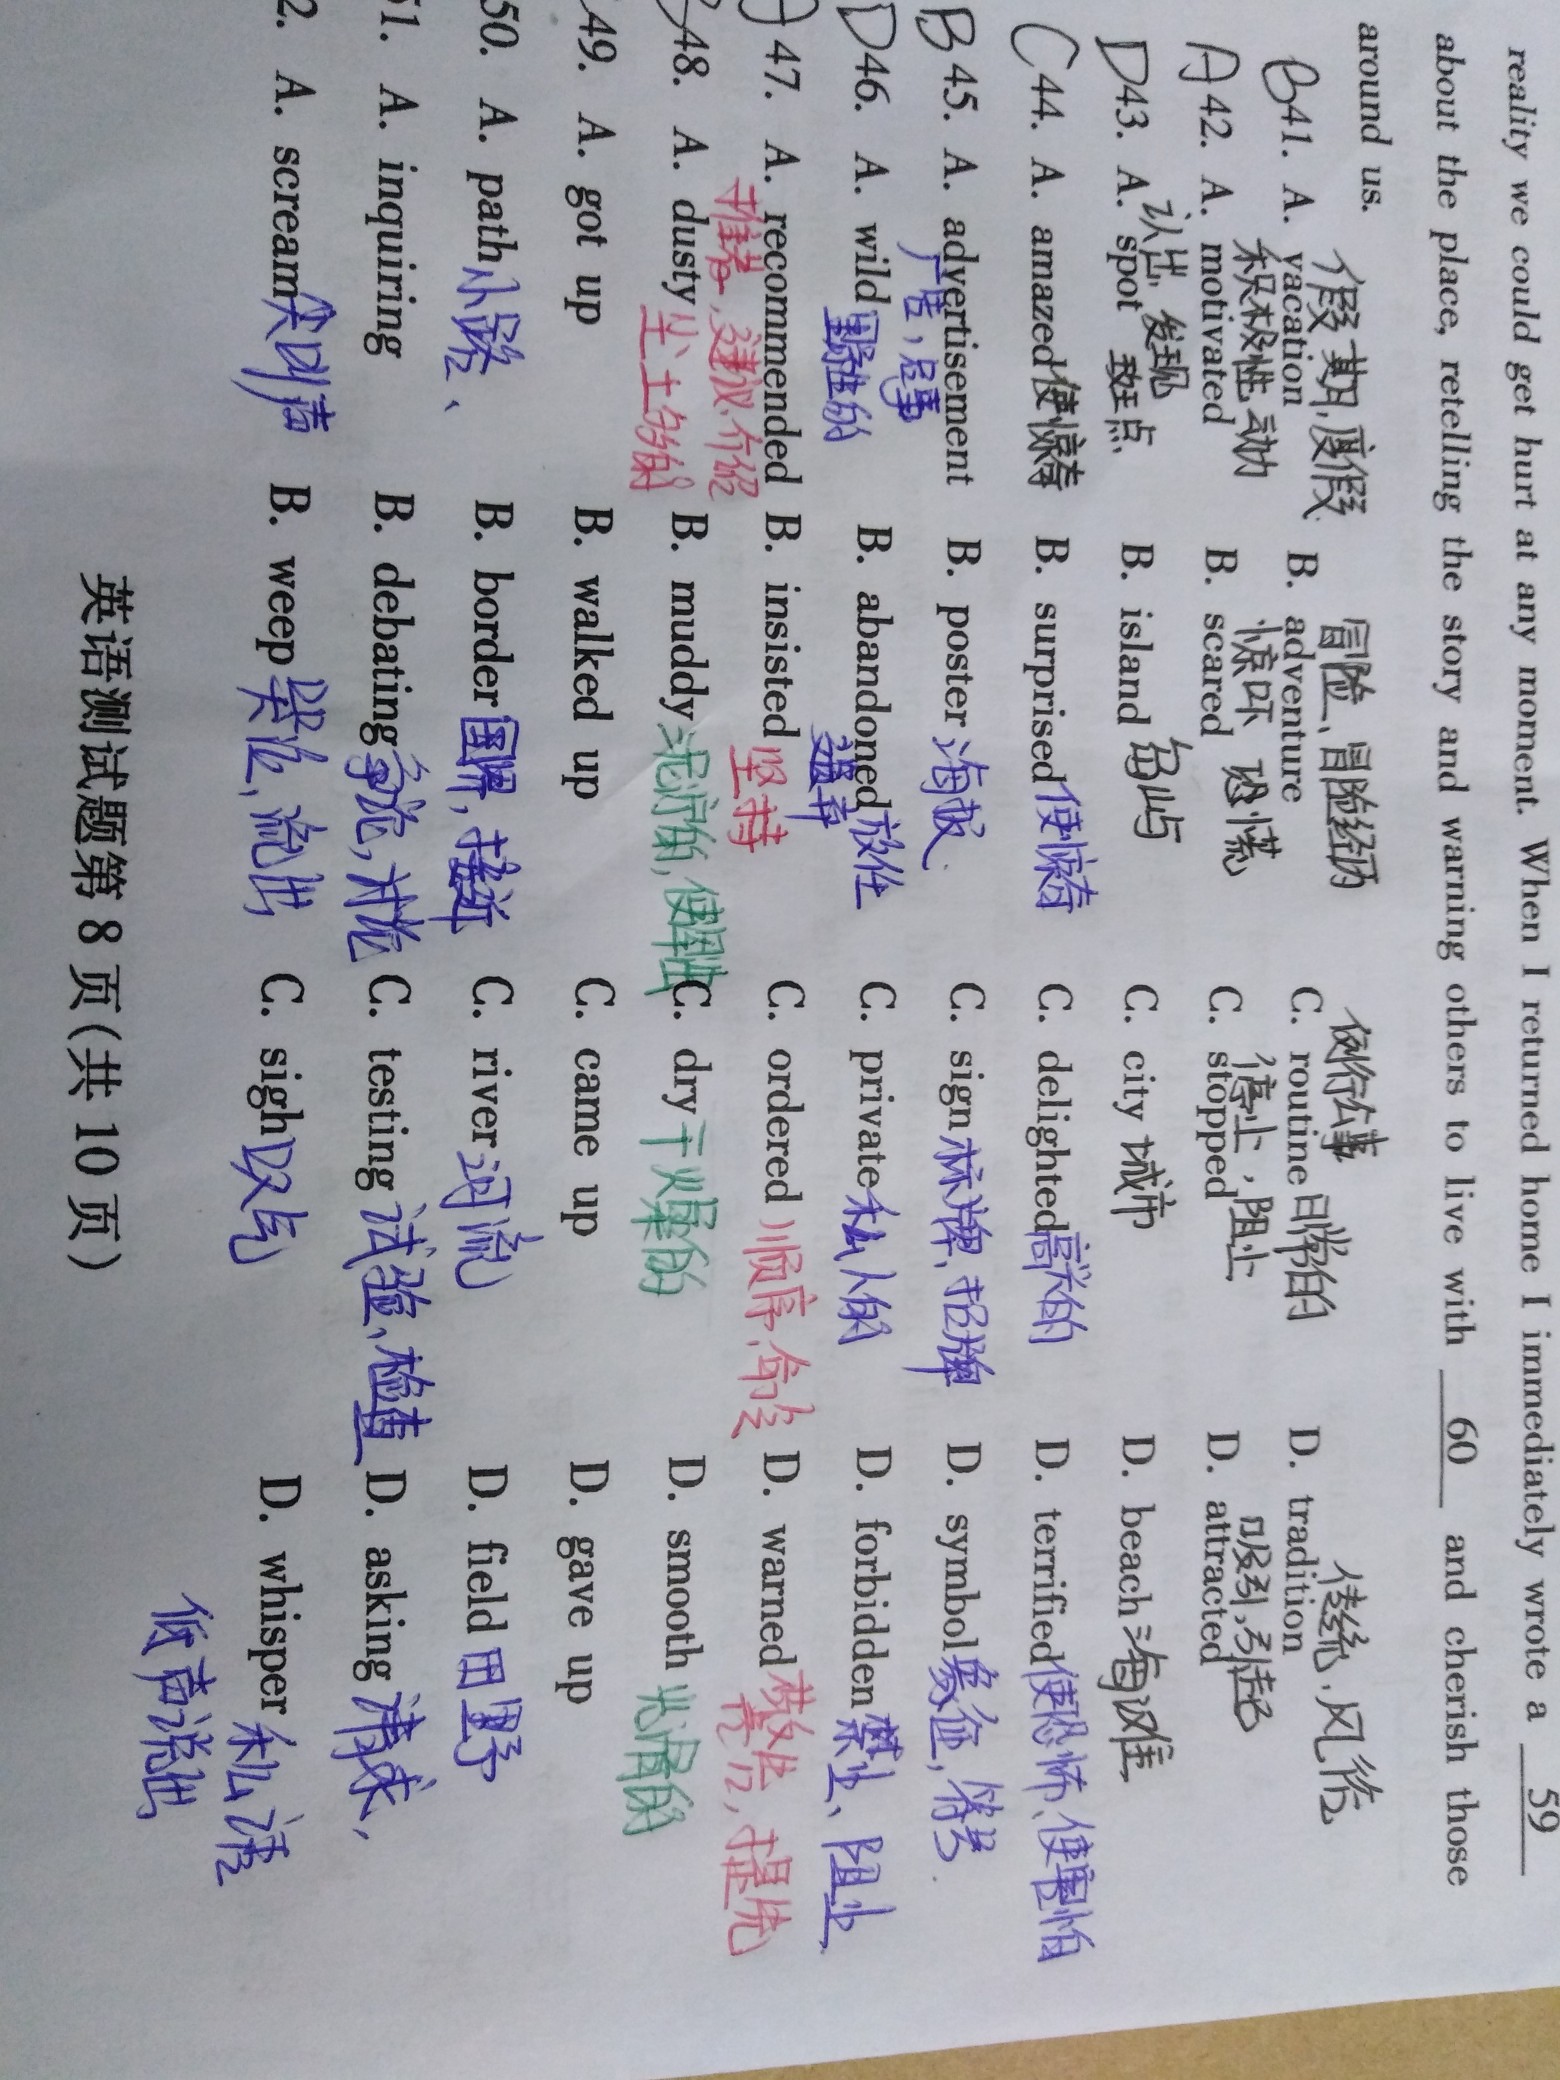 reality we could get hurt at any moment. When I returned home I immediately wrote a 59
about the place, retelling the story and warning others to live with 60 and cherish those
around us.
假期,度假 冒险、冒险经历 例行公事 传统,风俗
B 41. A. vacation B. adventure C. routine 日常的 D. tradition
积极性 动 惊吓 恐慌 停止,阻止 吸引,引起
A 42. A. motivated B. scared C. stopped D. attracted
认出,发现
D 43. A. spot 斑点 B. island 岛屿 C. city 城市 D. beach 海滩
C 44. A. amazed 使惊奇 B. surprised 使惊奇 C. delighted 高兴的 D. terrified 使恐怖、使害怕
B 45. A. advertisement B. poster 海报 C. sign 标牌,招牌 D. symbol 象征,符号
广告,启事
D 46. A. wild 野性的 B. abandoned 放任 C. private 私人的 D. forbidden 禁止、阻止
A 47. A. recommended B. insisted 坚持 C. ordered 顺序,命令 D. warned 警告,提先
推荐,建议,介绍
48. A. dusty 尘土多的 B. muddy 泥泞的, C. dry 干燥的 D. smooth 光滑的
49. A. got up B. walked up C. came up D. gave up
50. A. path 小路、 B. border 国界,接近 C. river 河流 D. field 田野
51. A. inquiring B. debating 争论,讨论 C. testing 试验,检查 D. asking 请求,
2. A. scream 尖叫声 B. weep 哭泣,流出 C. sigh 叹气 D. whisper 私语
低声说出
英语测试题第 8 页(共 10 页)